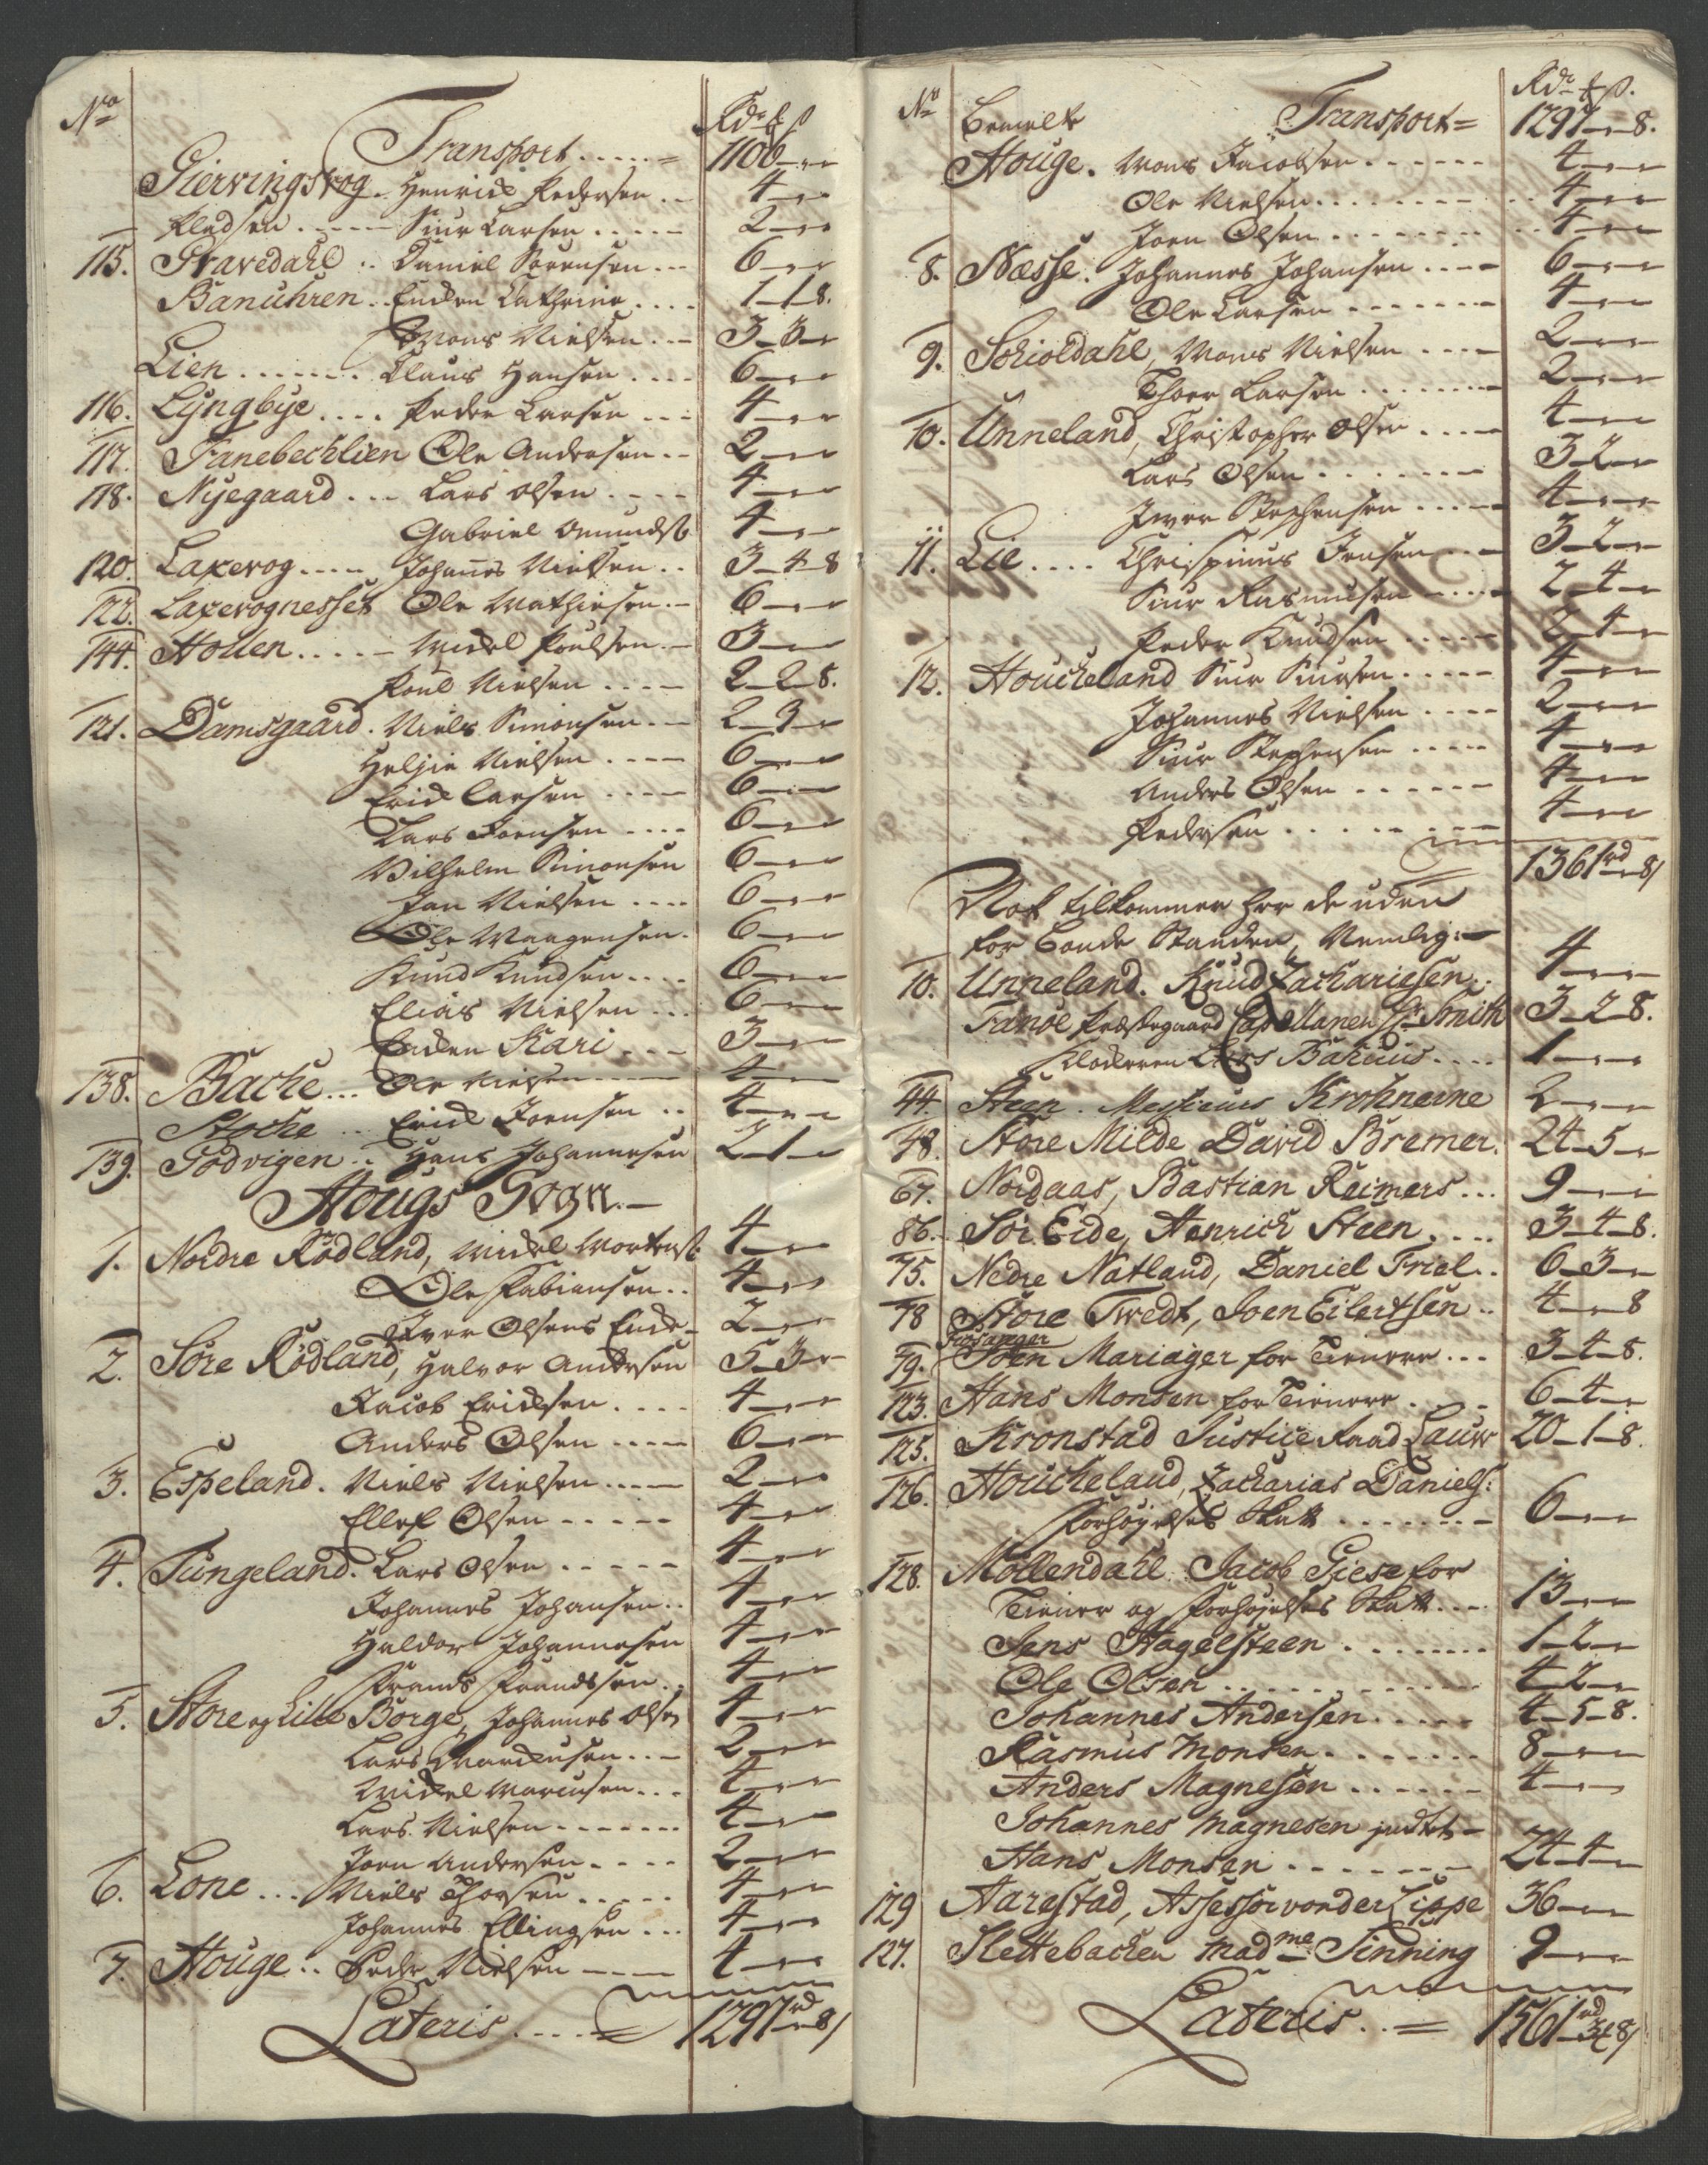 No Rdr ß
Transport..... = 1106 - -
Giervingsvog. Henrich Pedersen.. 4 - -
Pladsen..... Siur Larsen..... 2 - -
115. Gravedahl.. Daniel Sørensen... 6 - -
Banuhren.. Enchen Cathrine.... 1-1-8.
Mons Nielsen... 3-3-
Lien....... Claus Hansen.... 6 - -
116. Lyngbye.... Peder Larsen... 4 - -
117. Fanebechlien Ole Andersen.. 2 - -
118. Nyegaard... Lars Olsen.... 4 - -
Gabriel Omunds: 4 - -
120. Laxevog.... Johannes Nielsen.. 3-4-8
122. Laxevognesset Ole Mathiesen.. 6 - -
144. Hollen..... Michel Poulsen.. 3 - -
Poul Nielsen.... 2-2-8.
121. Damsgaard. Niels Simonsen... 2-3-
Heljie Nielsen.... 6 - -
Erich Larsen.... 6 - -
Lars Joensen.... 6 - -
Vilhelm Simonsen 6 - -
Jan Nielsen.... 6 - -
Ole Maagensen. 6 - -
Knud Knudsen.... 6 - -
Elias Nielsen... 6 - -
Enchen Kari... 3 - -
138. Bache... Ole Nielsen.... 4 - -
Stoche.. Erich Joensen.. 4 - -
139. Godvigen.. Hans Johannesen 2-1-
Hougs Sogn.
1. Nordre Rødland, Michel Mortens: 4 - -
Ole Fabiansen.. 4 - -
Iver Olsens Enche 2 - -
2. Søre Rødland, Halvor Andersen 5-3-
Jacob Erichsen.... 4 - -
Anders Olsen.... 6 - -
3. Espeland. Niels Nielsen.... 2 - -
Ellef Olsen..... 4 - -
4. Tungeland. Lars Olsen..... 4 - -
Johannes Johansen.. 4 - -
Haldor Johannesen 4 - -
Frands Frandssen.. 4 - -
5. Store og Lille Borge, Johannes Olsen 4 - -
Lars Mardusen... 2 - -
Michel Marcusen... 4 - -
Lars Nielsen....... 4 - -
Joen Andersen.... 2 - -
6. Lone... Niels Thorsen..... 4 - -
Johannes Ellingsen... 4 - -
7. Houge.. Peder Nielsen.... 4 - -
Lateris....= 1297rd-8ß
No Rdr ß.
Bemelte Transport= 1297 - 8.
Houge. Mons Jacobsen...... 4 - -
Ole Nielsen......... 4 - -
Joen Olsen........ 4 - -
8. Næsse. Johannes Johansen.... 6 - -
Ole Larsen....... 4 - -
9. Schioldahl, Mons Nielsen.... 2 - -
Thoer Larsen....... 2 - -
10. Unneland, Christopher Olsen.... 4 - -
Lars Olsen....... 3-2-
Iver Stephensen..... 4 - -
11. Lie.... Chrispinus Jensen... 3-2-
Siur Rasmusen..... 2-4-
Peder Knudsen..... 2-4-
12. Houcheland Siur Siursen..... 4 - -
Johannes Nielsen.... 2 - -
Siur Stephensen..... 4 - -
Anders Olsen...... 4 - -
Pedersen........ 4 - -
1361rd-8ß
Nok tilkommer her de uden
for bonde Standen, Nemlig:
10. Unneland. Knud Zachariesen. 4 - -
Fanøe Præstegaard Capellanen Hr Smith 3-2-8.
Klocheren Lars Bahuus.... 1 - -
44. Steen. Messieurs Krohnerne 2 - -
48. Store Milde David Bremer. 24-5-
67. Nordaas, Bastian Reimers... 9 - -
86. Sør Eide, Henrich Steen.... 3-4-8.
75. Nedre Natland, Daniel Friel.. 6-3-
78 Store Twedt, Joen Eilertsen.. 4 - 8
79. Joen Mariager for Tienere... 3-4-8.
123. Hans Monsen for Tienere.... 6-4-
125. Kronstad Justice Raad Lauw 20-1-8.
126. Houcheland, Zacharias Daniels:
Forhøyelses Skatt....... 6 - -
128. Møllendahl. Jacob Giese for
Tiener og Forhøjelses Skatt... 13 - -
Jens Hagelsteen....... 1-2-
Ole Olsen.......... 4-2-
Johannes Andersen..... 4-5-8.
Rasmus Monsen....... 8 - -
Anders Magnesen...... 4 - -
Johannes Magnesen
Hans Monsen....... 24-4-
129 Aarestad, Assessor von der Lippe 36 - -
127. Slettebacken Madme Finning 9 - -
Lateris..= 1561rd 3-8ß